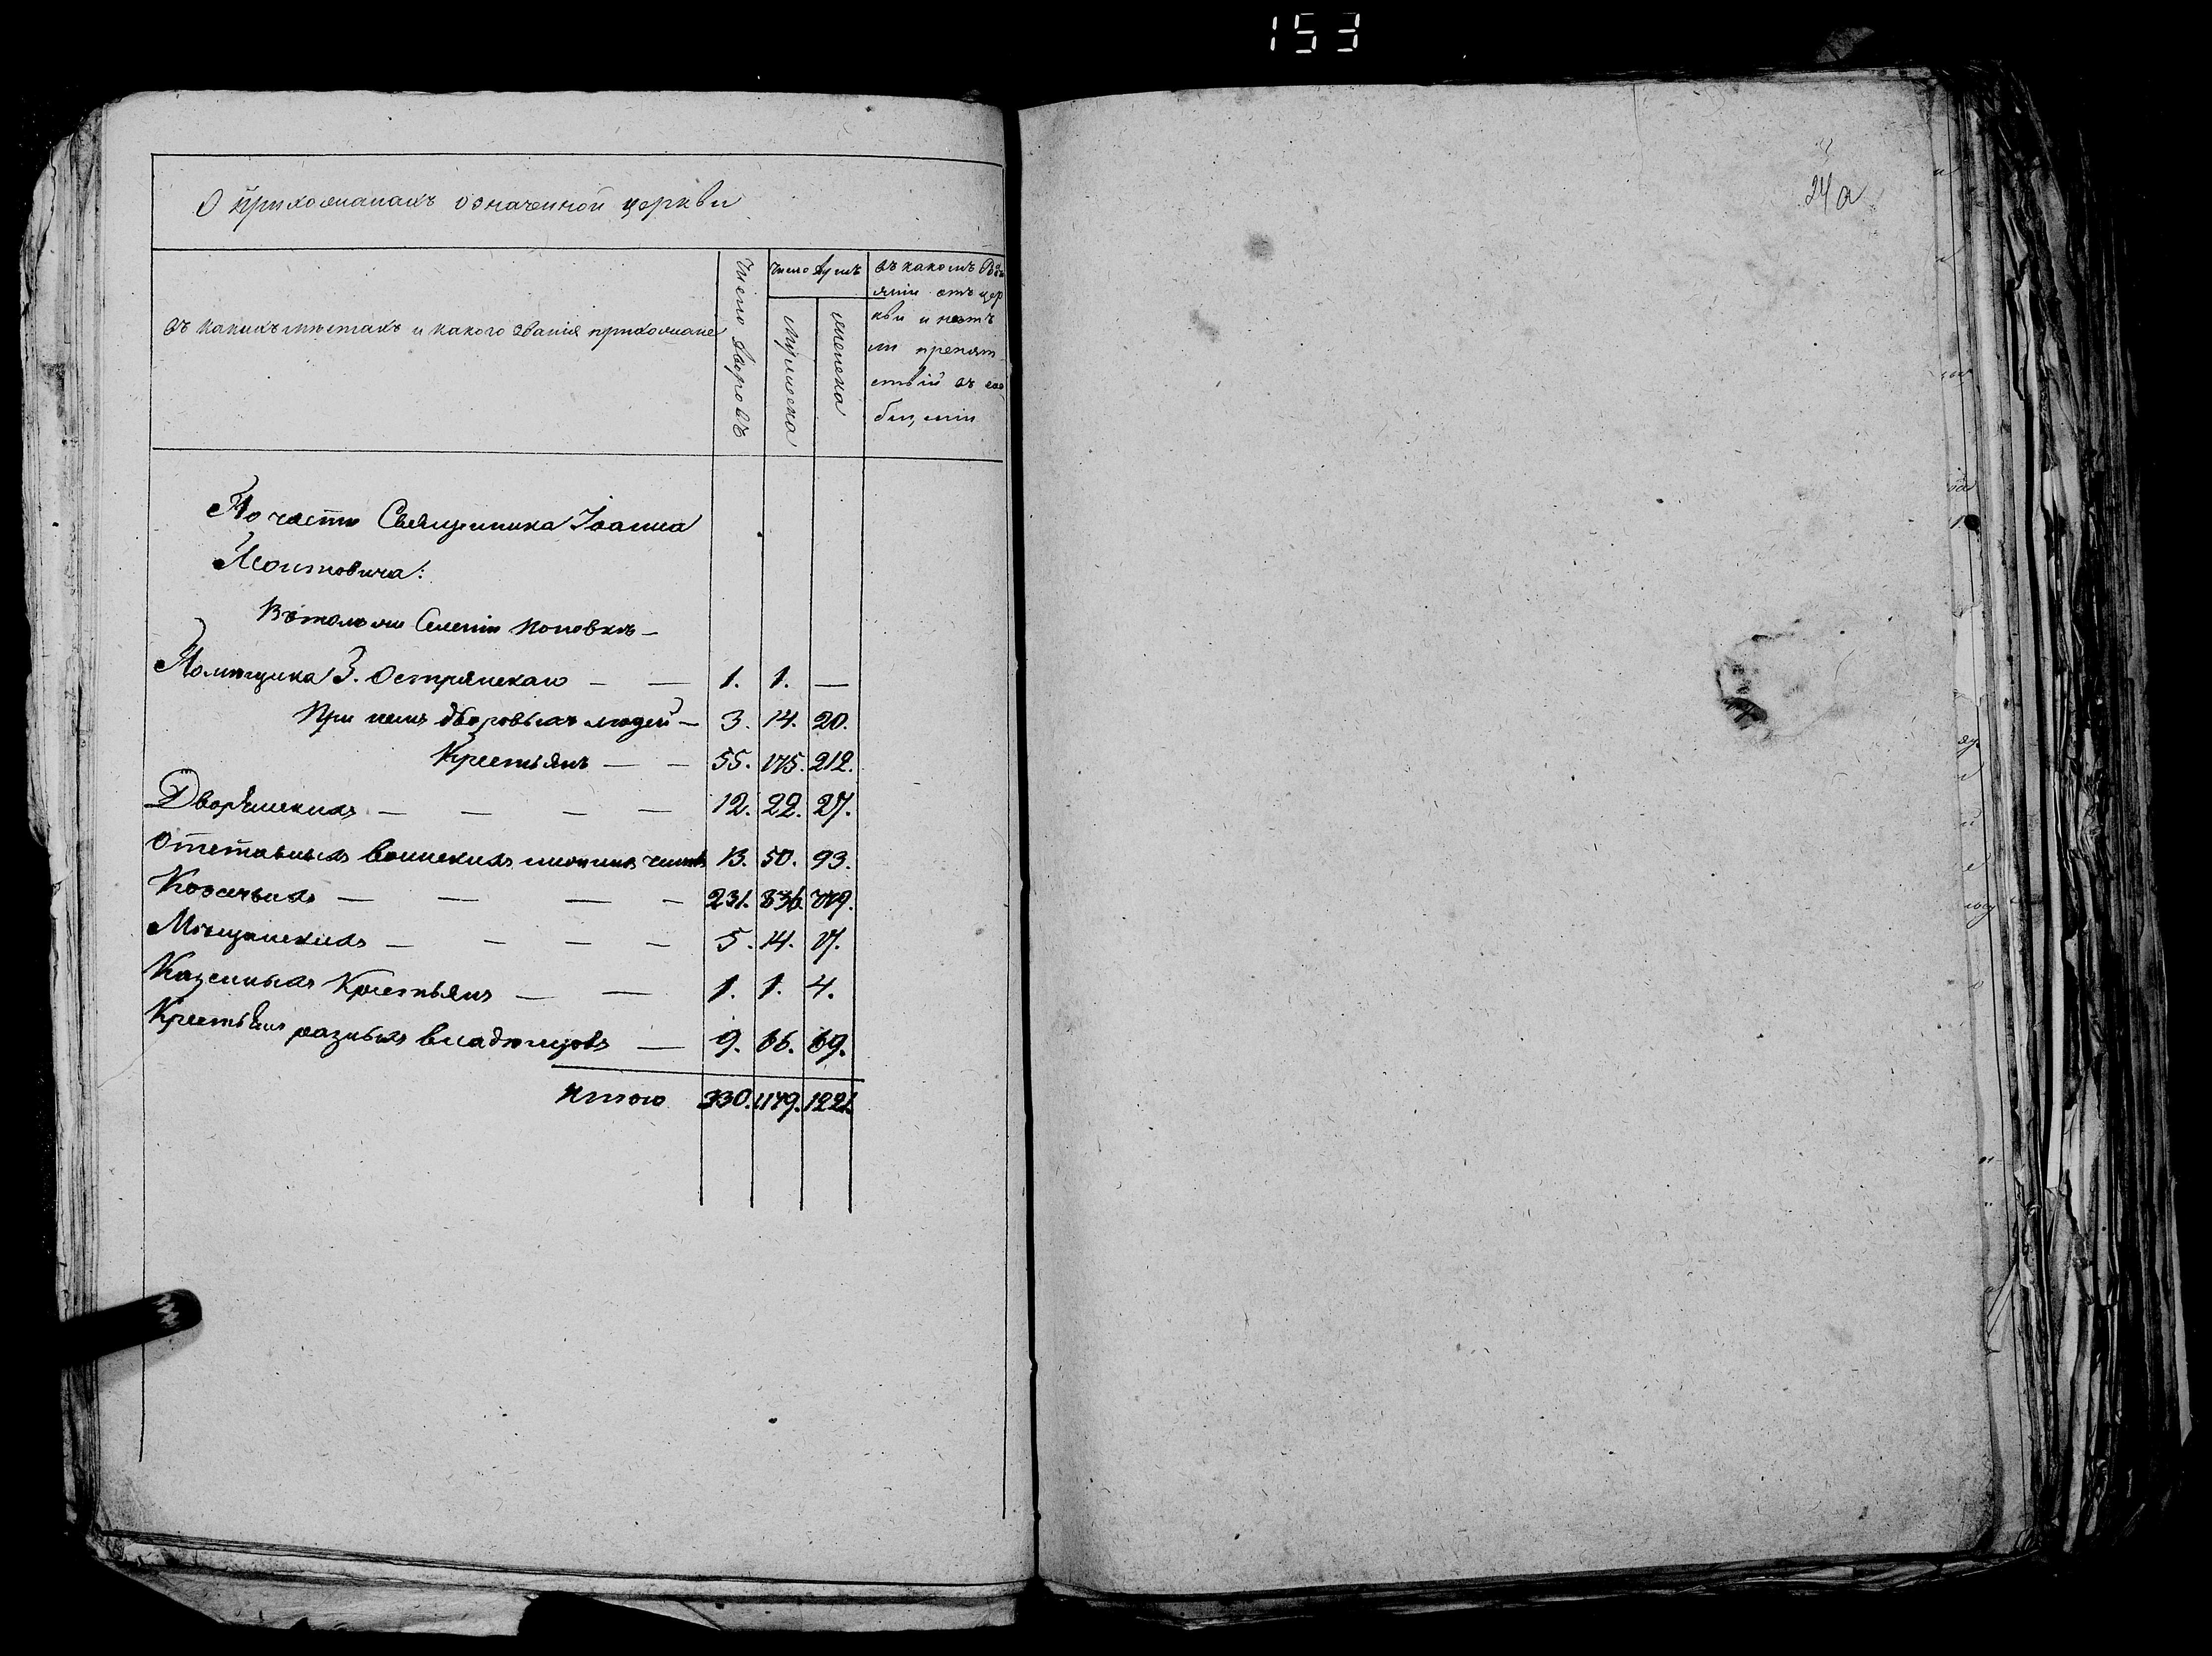 153
24а
О прихожанахъ означенной церкви
Въ какихъ мѣстахъ и какого званія прихожане
Число дворовъ
Число душъ
Мужеска
Женска
Въ какомъ
яніи отъ цер
кви и нѣтъ
ли препят
ствій въ соо
бщеніи
По части Священника Іоанна
Леонтовича:
Въ томъ же Селеніи Поповкѣ —
Помѣщика З. Острянскаго — — 1. 1. —
При немъ дворовыхъ людей — 3. 14. 20.
Крестьянъ — — 55. 175. 212.
Дворянскихъ — — — — 12. 22. 27.
Отставныхъ воинскихъ нижнихъ чиновъ 13. 50. 93.
Козачьихъ — — — — 231. 836. 779.
Мѣщанскихъ — — — — 5. 14. 17.
Казенныхъ Крестьянъ — — 1. 1. 4.
Крестьянъ разныхъ владѣльцовъ — 9. 66. 69.
Итого 330. 1179. 1221.